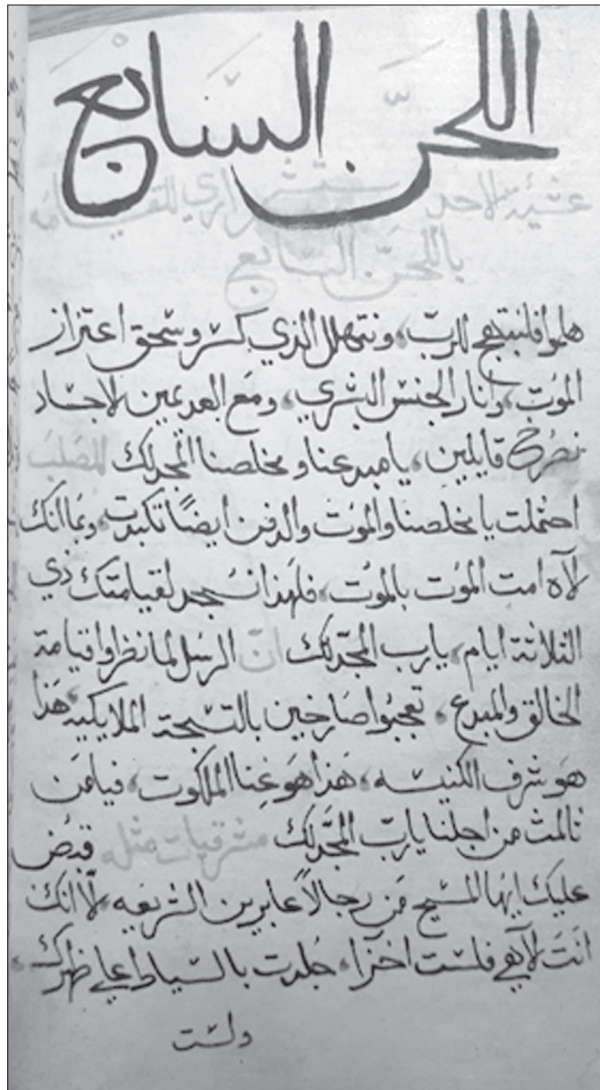 اللحن السابع
عشية الاحد ستشراري للقيامه
باللحن السابع
هلموا فلنبتهج للرب، ونتهلل الذي كسر وسحق اعتزاز
الموت، وانار الجنس البشري، ومع العديمين الاجساد
نصرخ قايلين، يا مبدعنا ومخلصنا المجد لك للصلب
احتملت يا مخلصنا والموت والدفن ايضًا تكبدت، وبما انك
لاه امت الموت بالموت، فلهذا نسجد لقيامتك ذي
الثلاثة ايام، يارب المجد لك ان الرسل لما نظروا قيامة
الخالق والمبدع، تعجبوا صارخين بالتسبحة الملايكيه هذا
هو شرف الكنيسه، هذا هو غنا الملكوت، فيا من
تالمت من اجلنا يارب المجد لك مشرقيات مثله قبض
عليك ايها المسيح من رجالاً عابرين الشريعه لانك
انت لاهي فلست اخزا، جلدت بالسياط على ظهرك،
ولست